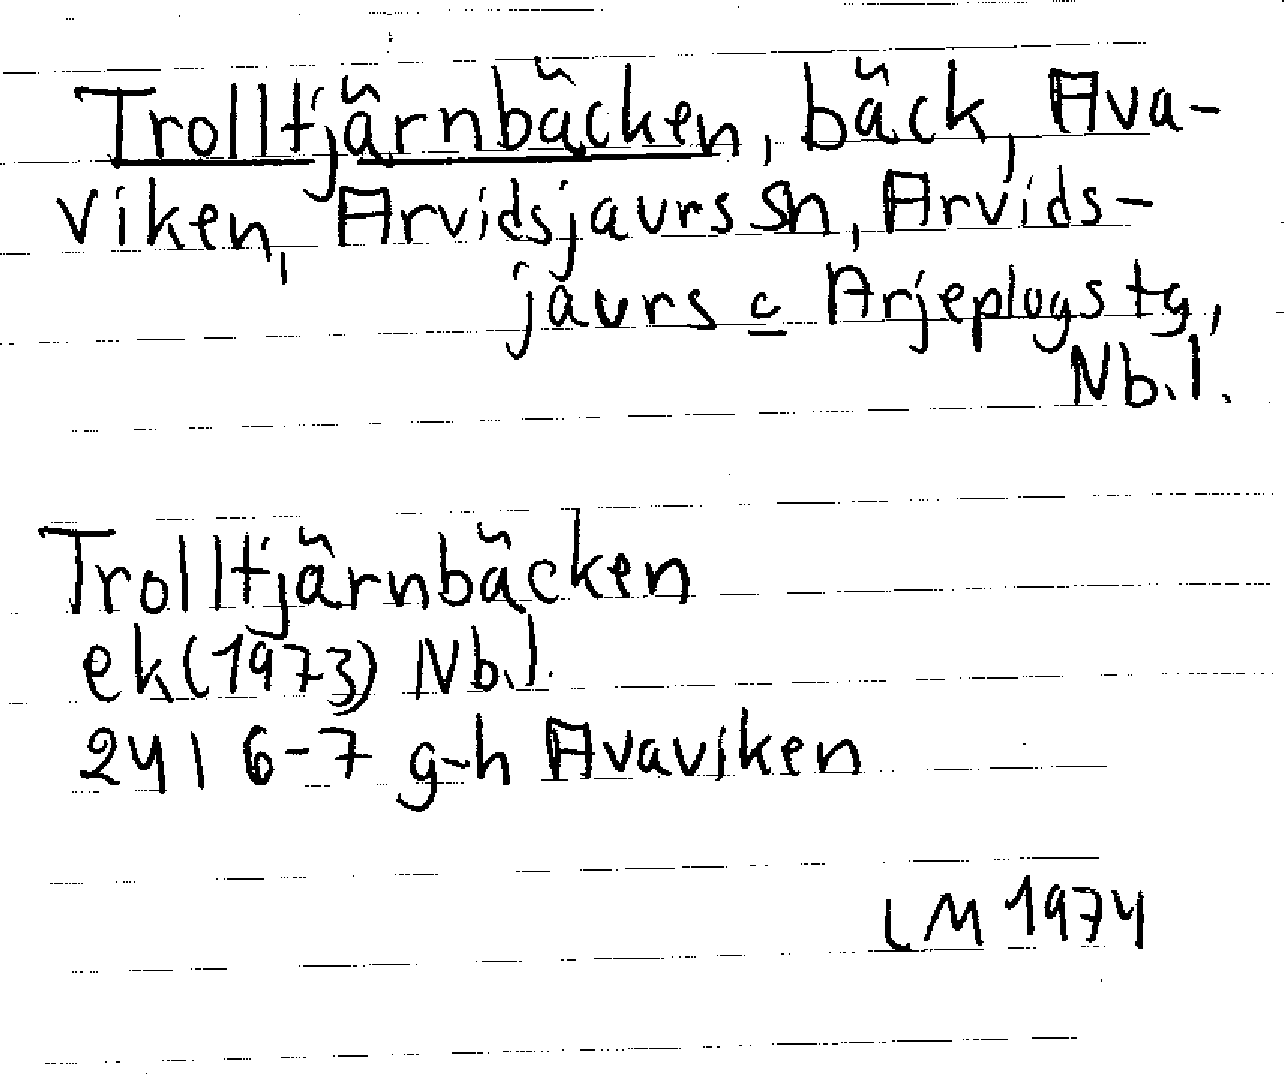 Trolltjärnbäcken, bäck, Ava-
viken, Arvidsjaurs sn, Arvids-
jaurs c Arjeplogs tg,
Nb.l.
Trolltjärnbäcken
ek (1973) Nb.l.
24 I 6-7 g-h Avaviken
LM 1974